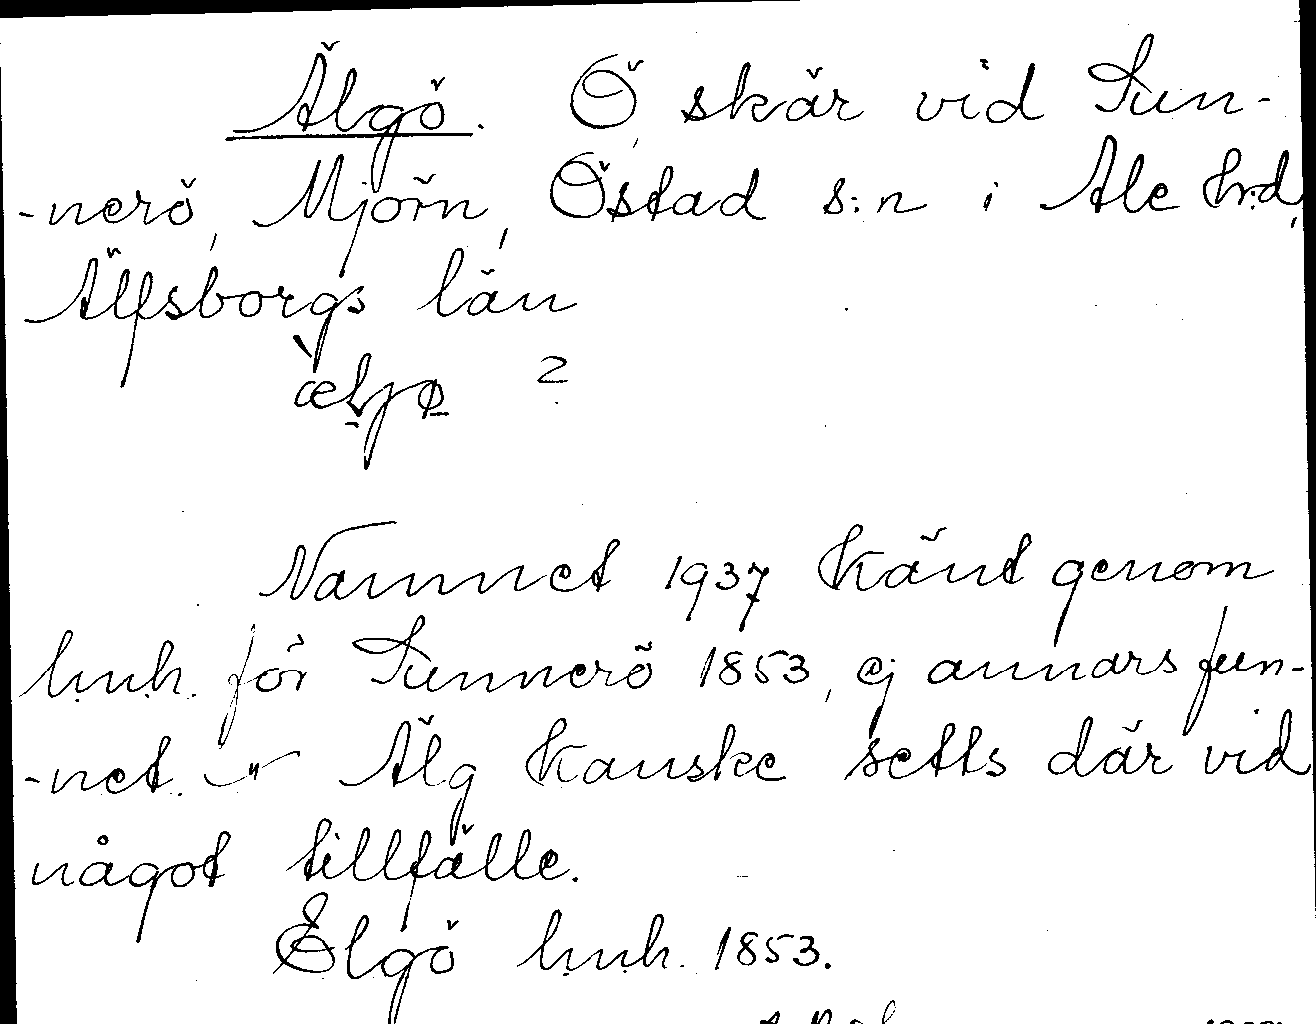 Älgö. Ö, skär vid Sun-
-nerö, Mjörn, Östad s:n i Ale hrd,
Älfsborgs län
Namnet 1937 känt genom
lmh. för Sunnerö 1853, ej annars fun-
-net. Älg kanske setts där vid
något tillfälle.
Elgö lmh. 1853.